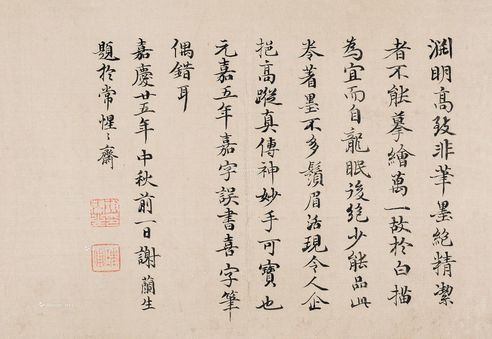 淵明高致非筆墨絕精潔
者不能摹繪萬一故於白描
為宜而自龍眠後絕少能品此
卷著墨不多鬚眉活現令人企
挹高蹤真傳神妙手可寶也
元嘉五年嘉字誤書喜字筆
偶錯耳
嘉慶廿五年中秋前一日謝蘭生
題於常惺〻齋